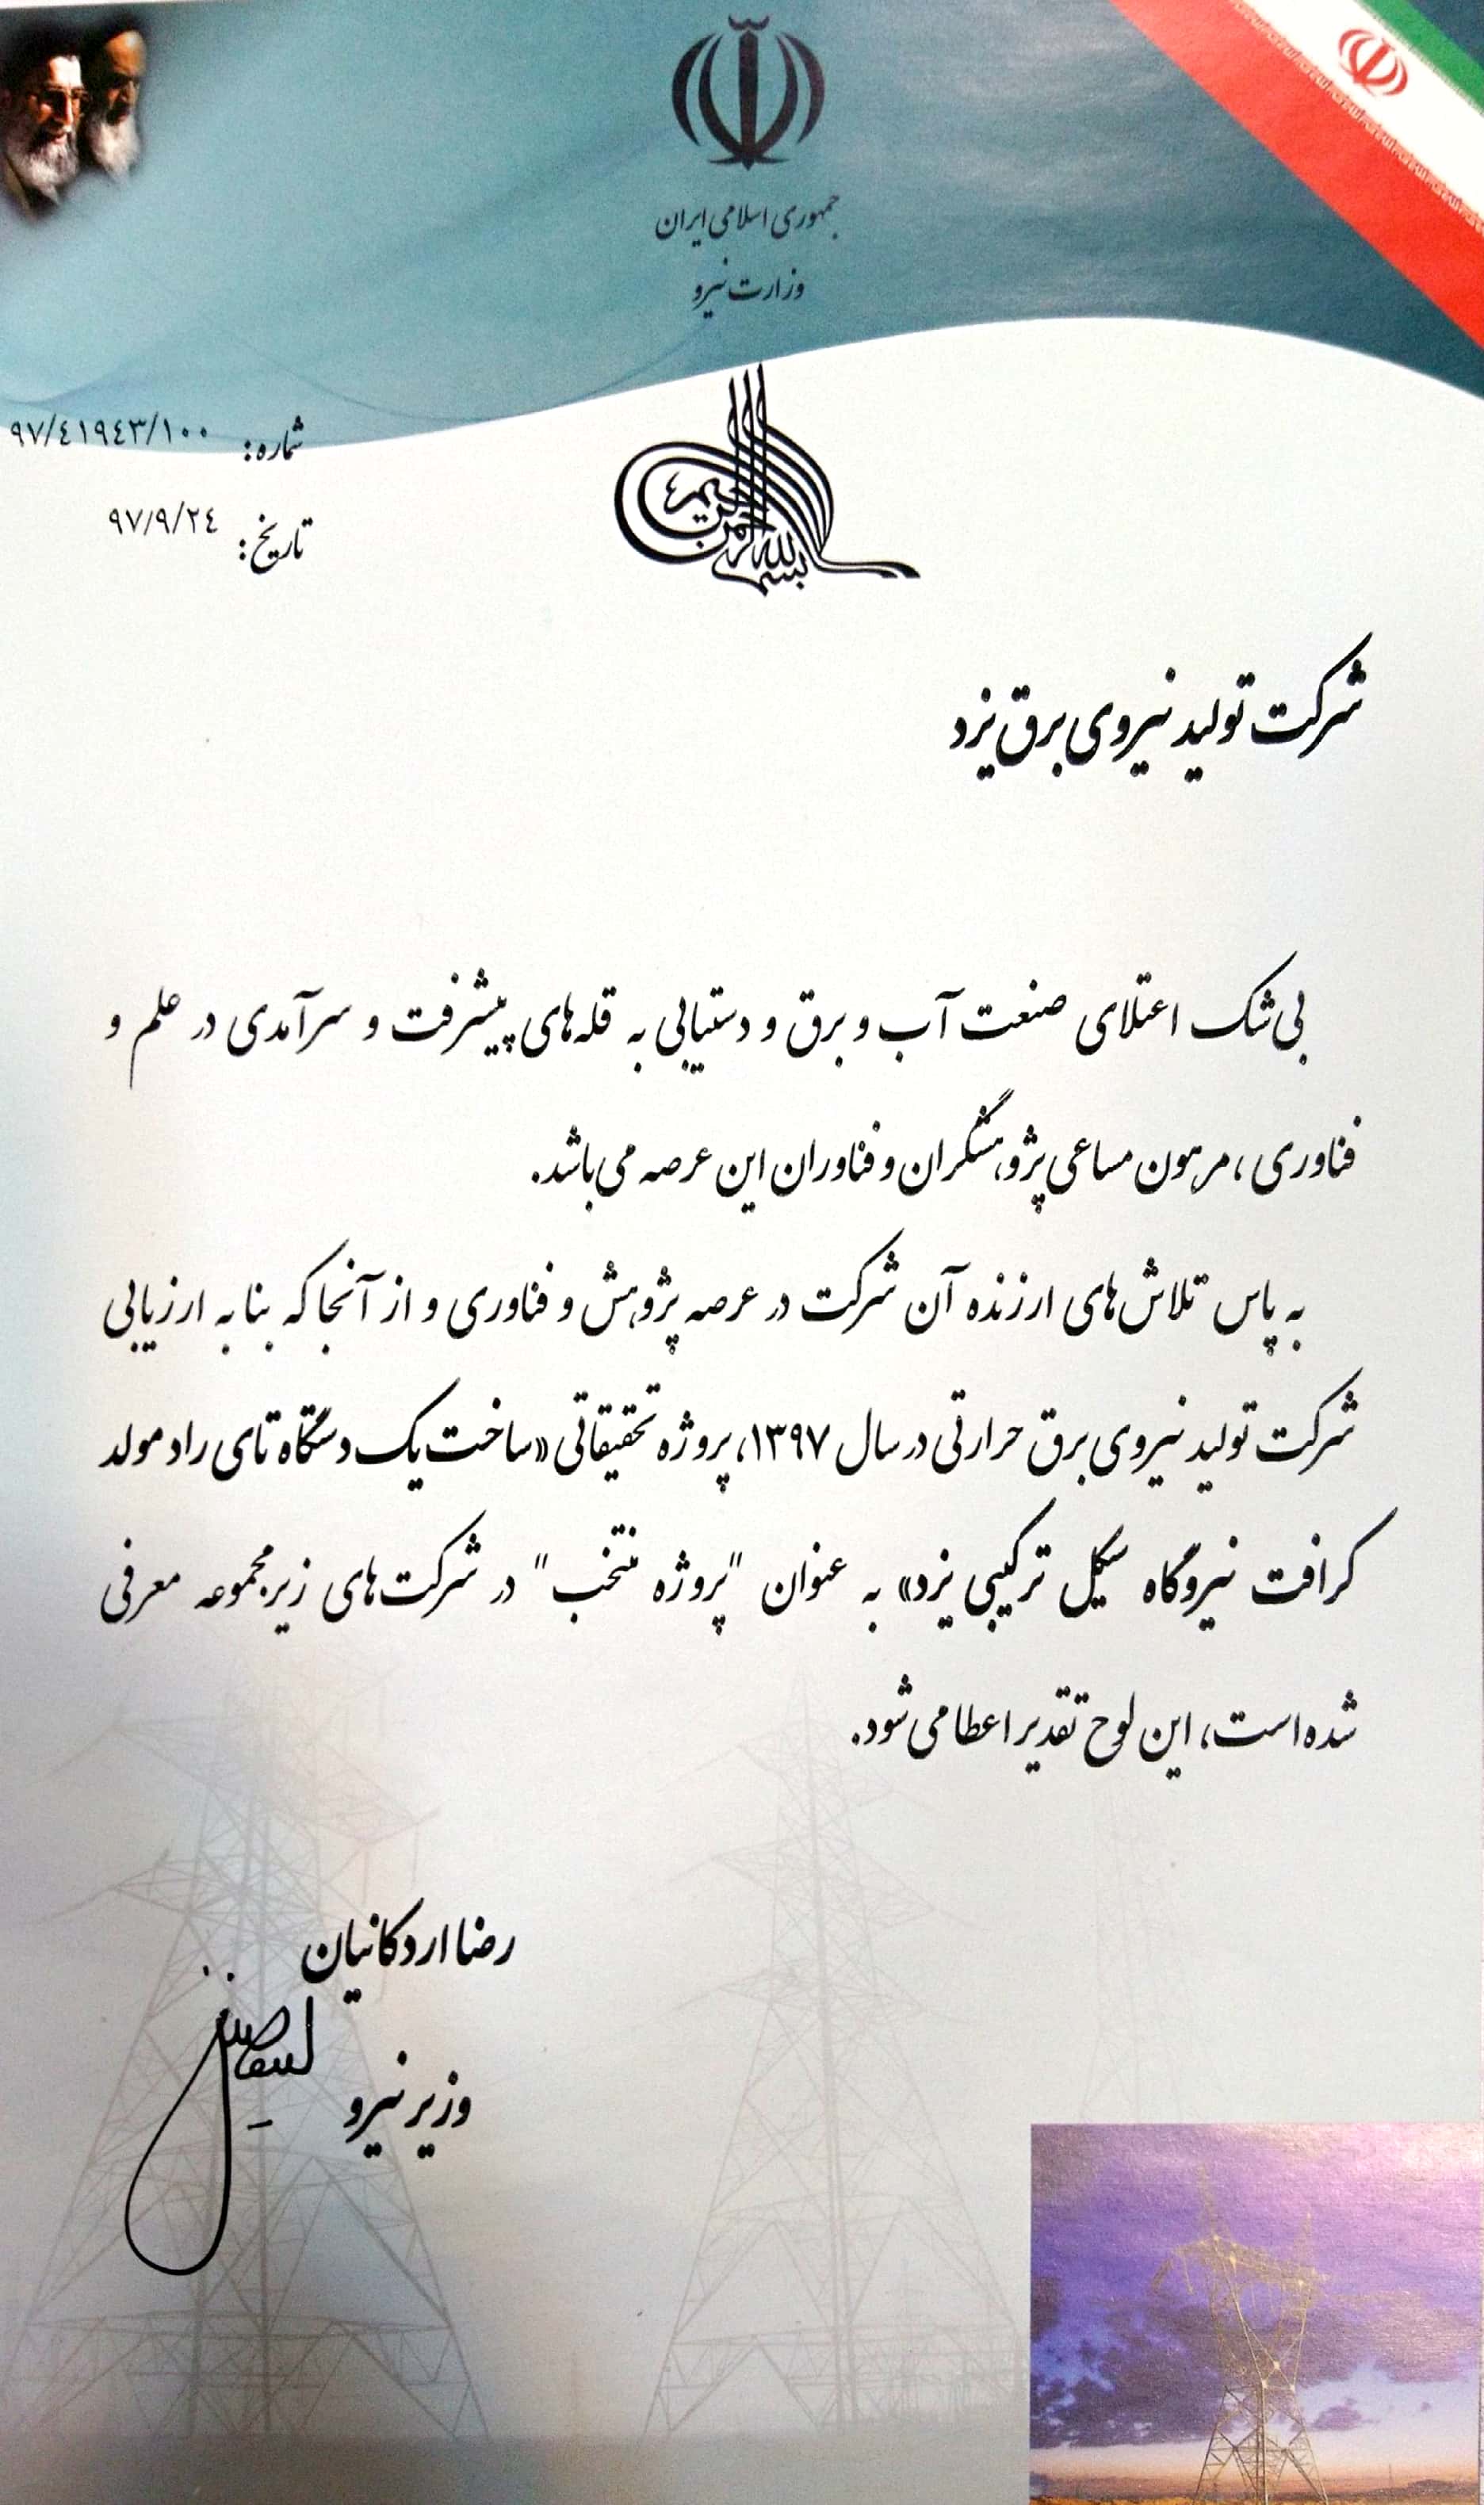 جمهوری اسلامی ایران
وزارت نیرو
بسم الله الرحمن الرحیم
شماره: ۹۷/٤۱۹٤۳/۱۰۰
تاریخ: ۹۷/۹/۲٤
شرکت تولید نیروی برق یزد
بی‌شک اعتلای صنعت آب و برق و دستیابی به قله‌های پیشرفت و سرآمدی در علم و
فناوری، مرهون مساعی پژوهشگران و فناوران این عرصه می‌باشد.
به پاس تلاش‌های ارزنده آن شرکت در عرصه پژوهش و فناوری و از آنجا که بنا به ارزیابی
شرکت تولید نیروی برق حرارتی در سال ۱۳۹۷، پروژه تحقیقاتی «ساخت یک دستگاه تای راد مولد
کرافت نیروگاه سیکل ترکیبی یزد» به عنوان "پروژه منتخب" در شرکت‌های زیرمجموعه معرفی
شده است، این لوح تقدیر اعطا می‌شود.
رضا اردکانیان
وزیر نیرو